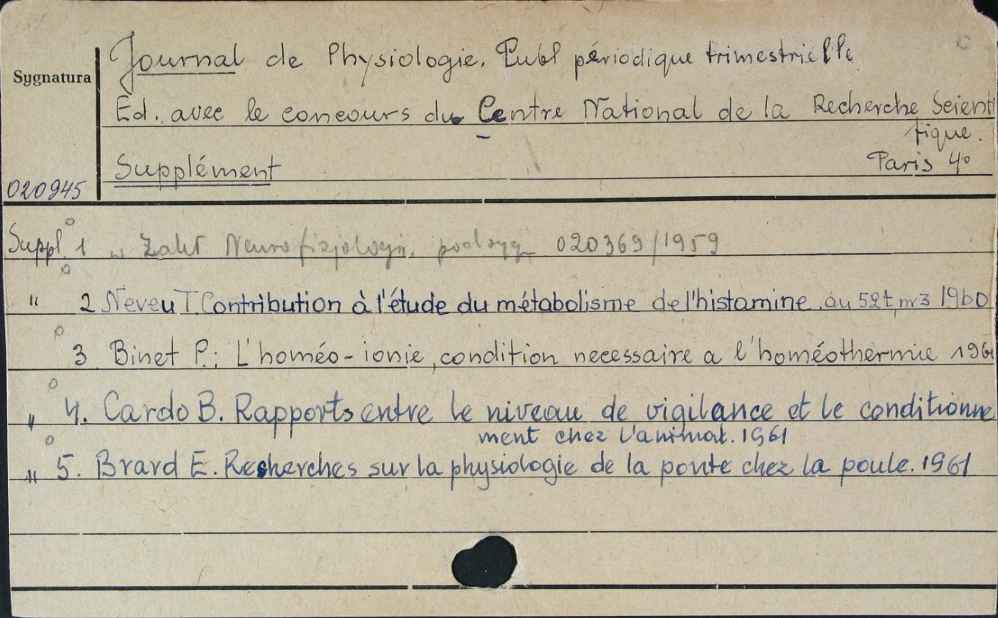 Journal de Physiologie. Publ périodique trimestrielle
Sygnatura
Ed. avec le concours du Centre National de la Recherche Scienti
fique.
Supplément Paris 4°
020945
Suppl. 1 w Zakł Neurofizjologii, 020369/1959
" 2 Neveu T. Contribution à l'étude du métabolisme de l'histamine. au 52 t, m 3 1960
3 Binet P.; L'homéo-ionie, condition necessaire a l'homéothermie 1961
" 4. Cardo B. Rapports entre le niveau de vigilance et le conditionne
ment chez l'animal. 1961
" 5. Brard E. Recherches sur la physiologie de la ponte chez la poule. 1961